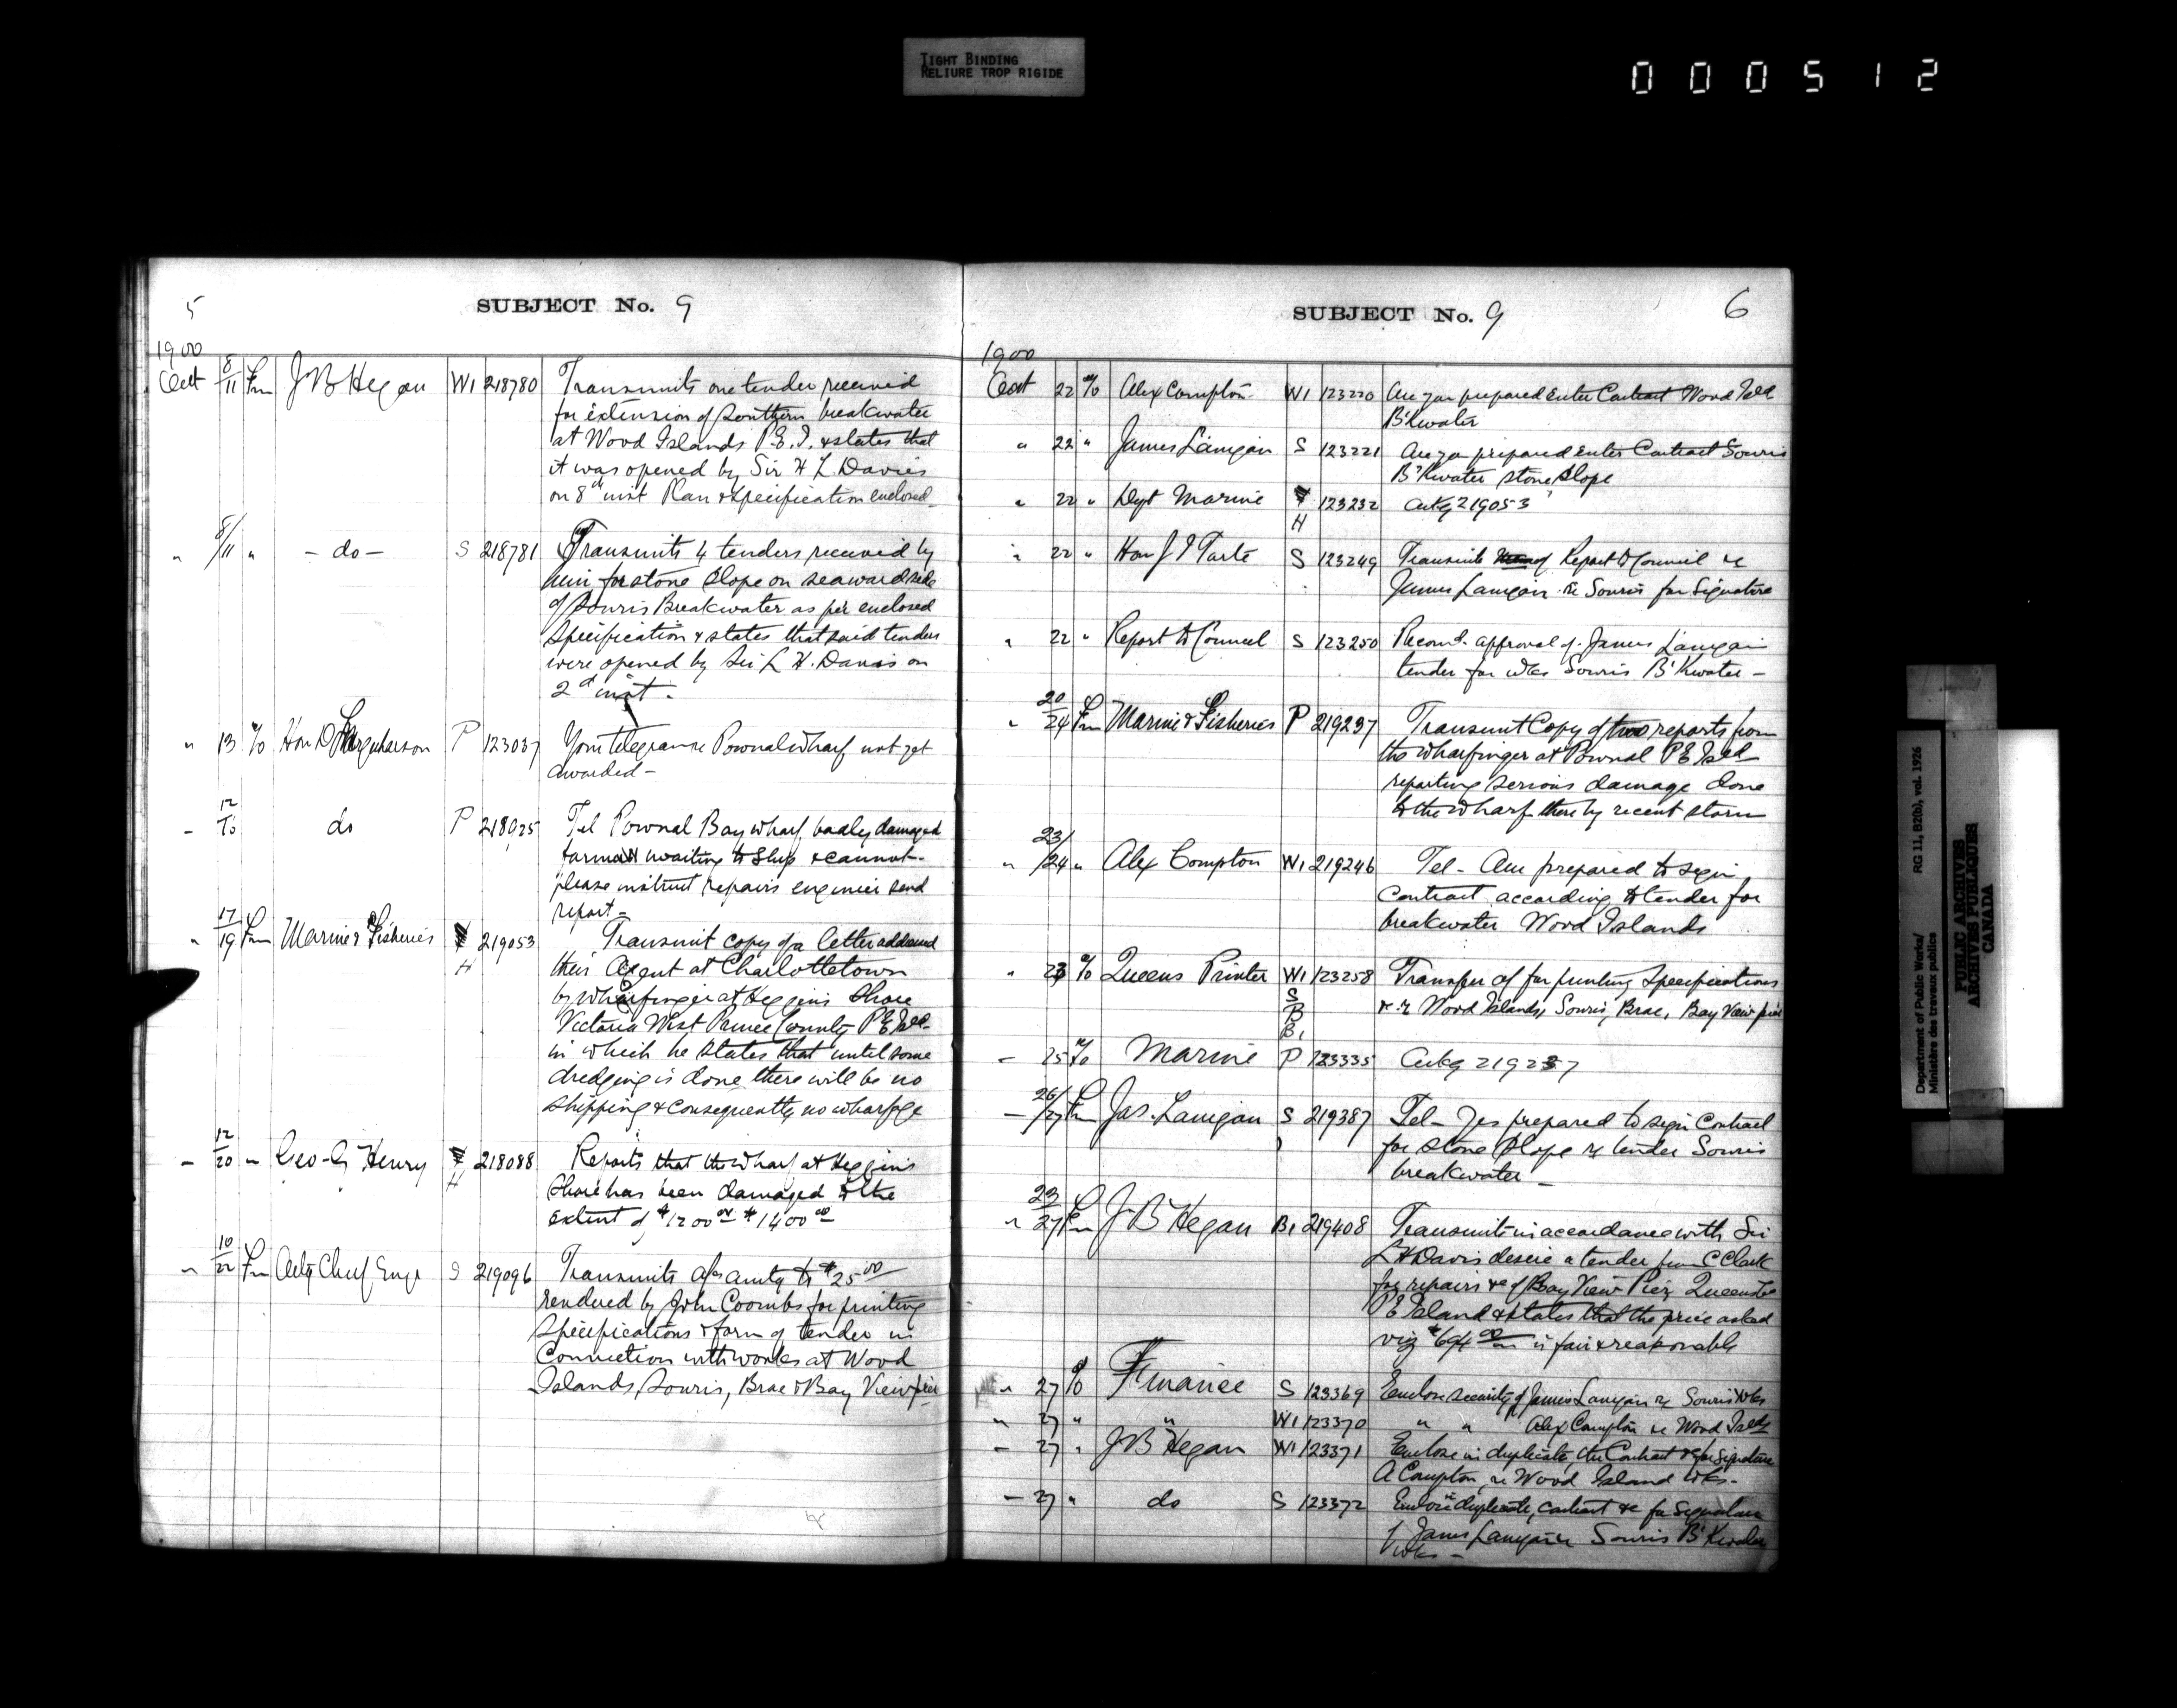 TIGHT BINDING
RELIURE TROP RIGIDE
000512
5
SUBJECT No. 9
1900
Oct 8/11 Fm J B Hegan W1 218780 Transmits one tender received
for extension of Southern breakwater
at Wood Islands P.E.I. & states that
it was opened by Sir H L Davies
on 8th inst Plan & specification enclosed
" 8/11 " - do - S 218781 Transmits 4 tenders received by
him for stone slope on seaward side
of Souris Breakwater as per enclosed
specification & states that said tenders
were opened by Sir L H. Davies on
2d inst -
" 13 T/o Hon D Farquharson P 123037 Your telegram re Pownal wharf not yet
awarded -
- 12/13 do P 218025 Tel Pownal Bay wharf badly damaged
farmers waiting to ship & cannot -
please instruct repairs engineer send
report -
" 17/19 Fm Marine & Fisheries H 219053 Transmit copy of a letter addressed
their Agent at Charlottetown
by Wharfinger at Higgins Shore
Victoria West Prince County P E Isld
in which he states that until some
dredging is done there will be no
shipping & consequently no wharfage
- 12/20 " Geo - G Henry H 218088 Reports that the wharf at Higgins
Shore has been damaged to the
extent of $1200 or $1400 00
" 10/22 Fm Actg Chief Engr S 219096 Transmits a/cs amtg to $25 00
rendered by John Coombs for printing
specifications & form of tender in
Connection with works at Wood
Islands, Souris, Brae & Bay View pier
SUBJECT No. 9
6
1900
Oct 22 T/o Alex Compton W1 123220 Are you prepared enter Contract Wood Isld
B'Kwater
" 22 " James Lanigan S 123221 Are you prepared enter Contract Souris
B'Kwater stone slope
" 22 " Dept Marine H 123232 Ackg 219053
" 22 " Hon J I Tarte S 123249 Transmits Report to Council re
James Lanigan re Souris for signature
" 22 " Report to Council S 123250 Recomd. approval of James Lanigan
tender for wks Souris B'Kwater -
" 20/24 Fm Marine & Fisheries P 219237 Transmit Copy of two reports from
the Wharfinger at Pownal P E Isld
reporting serious damage done
to the wharf there by recent storm
" 23/24 " Alex Compton W1 219246 Tel - Am prepared to sign
Contract according to tender for
breakwater Wood Islands
" 23 T/o Queens Printer W1 123258 Transfer of for printing Specifications
S
B
B1
&c re Wood Islands, Souris, Brae, Bay View pier
- 25 T/o Marine P 123335 Ackg 219237
- 26/27 Fm Jas. Lanigan S 219387 Tel - Yes prepared to sign Contract
for stone slope re tender Souris
breakwater -
" 23/27 Fm J B Hegan B1 219408 Transmits in accordance with Sir
L H Davis desire a tender from C Clark
for repairs &c of Bay View Pier Queens Co
P E Island & states that the price asked
viz $694 00 is fair & reasonable
" 27 T/o Finance S 123369 Enclose security of James Lanigan re Souris Wks
" 27 " " W1 123370 " " Alex Compton re Wood Islds
- 27 " J B Hegan W1 123371 Enclose in duplicate, the Contract &c for signature
A Compton, re Wood Island wks -
- 27 " do S 123372 Enclose duplicate, contract &c for signature
of James Lanigan re Souris B'Kwater
wks -
Department of Public Works/
Ministère des travaux publics
RG 11, B2(b), vol. 1926
PUBLIC ARCHIVES
ARCHIVES PUBLIQUES
CANADA